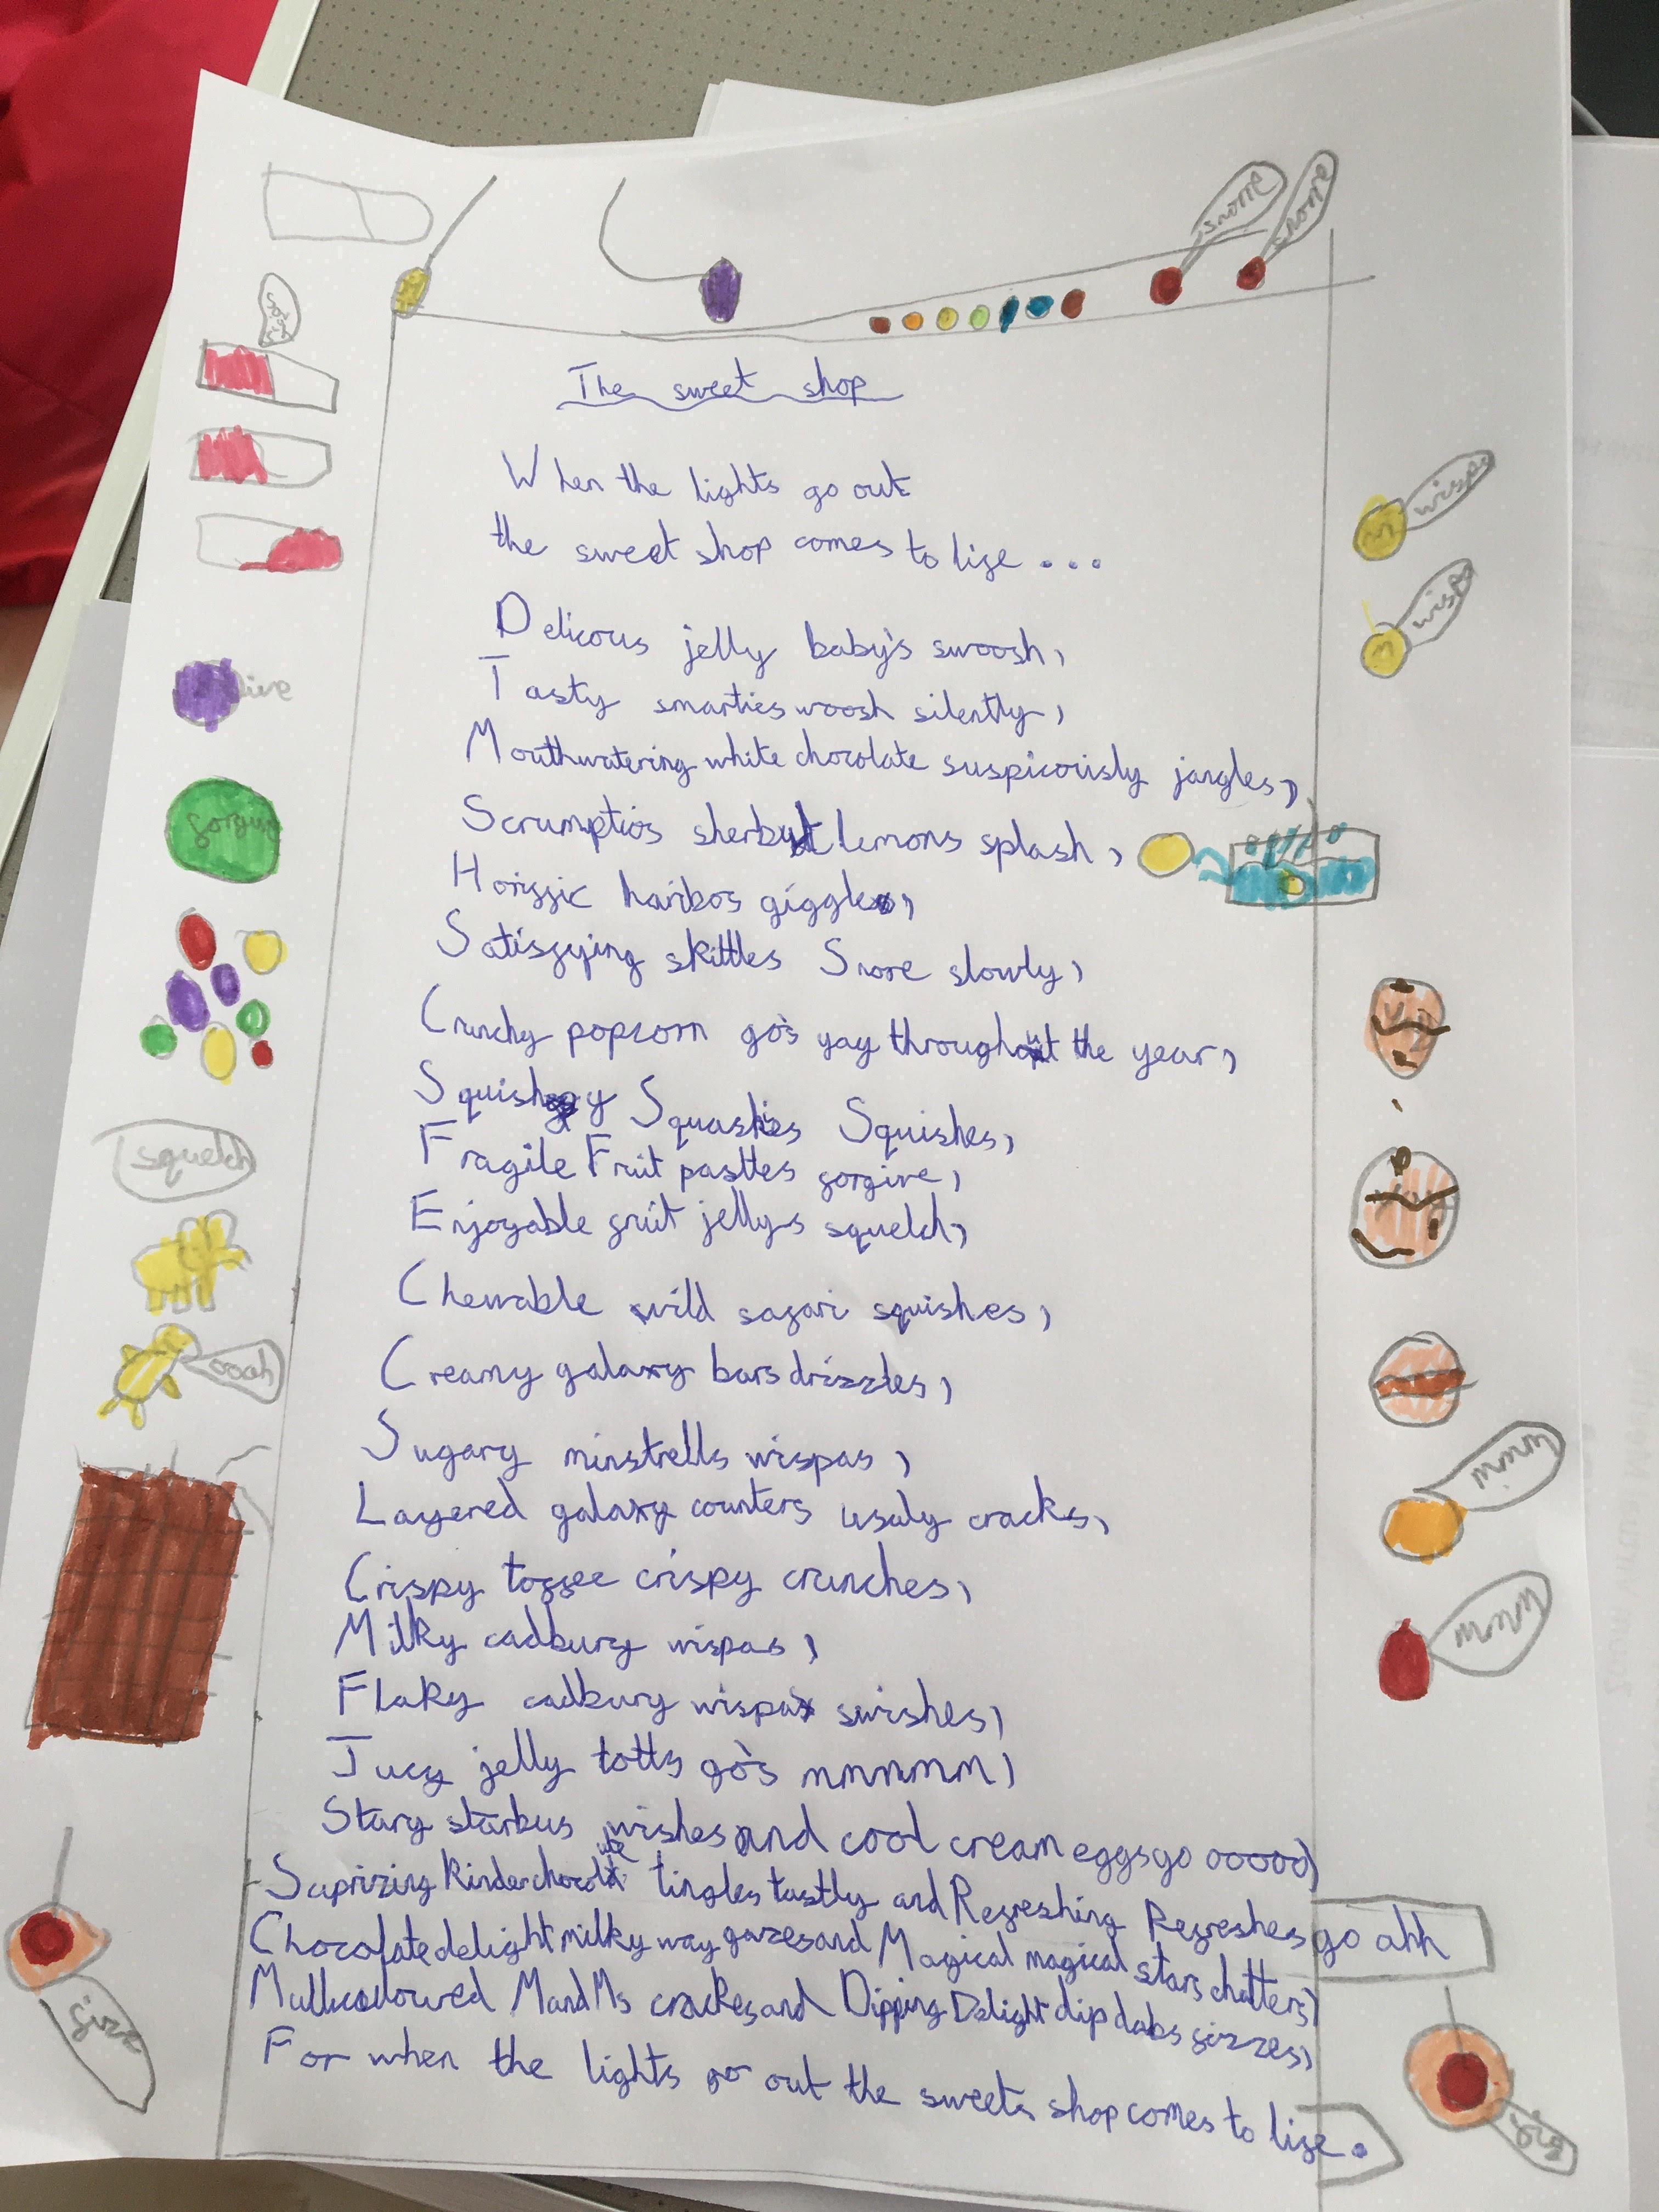 snore
snore
The sweet shop
When the lights go out
the sweet shop comes to life ...
wisp
wisp
Delicous jelly baby's swoosh,
Tasty smarties woosh silently,
Mouthwatering white chocolate suspicously jangles,
Scrumptios sherbut lemons splash,
Horiffic haribos giggles,
Satisfying skittles Snore slowly,
Crunchy popcorn go's yay throughout the year,
Squishy Squashies Squishes,
Fragile Fruit pasttles forgive,
Enjoyable fruit jellys squelch,
squelch
Chewable wild safari squishes,
Creamy galaxy bars drizzles,
oooh
Sugary minstrells wispas,
Layered galaxy counters usualy cracks,
mmm
Crispy toffee crispy crunches,
Milky cadbury wispas,
mmm
Flaky cadbury wispas swishes,
Jucy jelly totts go's mmmmm,
Stary starbus wishes and cool cream eggs go ooooo,
Suprizing Kinder chocolate tingles tastly and Refreshing Refreshes go ahh
Chocolate delight milky way gazes and Magical magical stars chatters,
Multicoloured M and Ms crackes and Dipping Delight dip dabs fizzes,
For when the lights go out the sweets shop comes to life.